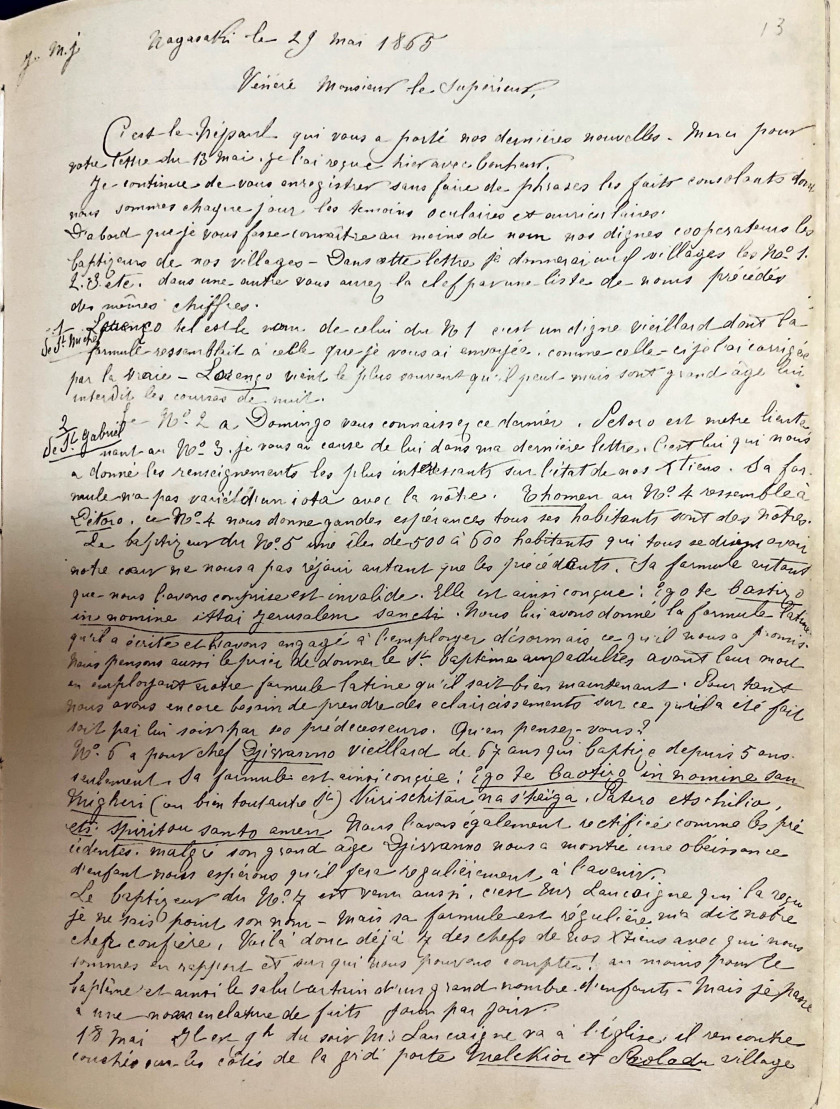 13
J. M. J
Nagasaki le 29 mai 1865
Vénéré Monsieur le Supérieur,
C'est le qui vous a porté nos dernières nouvelles - Merci pour
votre lettre du 13 mai. je l'ai reçue hier avec bonheur,
Je continue de vous enregistrer sans faire de phrases les faits consolants dont
nous sommes chaque jour les temoins oculaires et auriculaires.
D'abord que je vous fasse connaître au moins de nom nos dignes cooperateurs les
baptiseurs de nos villages - Dans cette lettre je donnerai aux villages les Nos 1.
2. 3. etc. dans une autre vous aurez la clef par une liste de noms précédés
des mêmes chiffres.
1 Lorenzo tel est le nom de celui du No 1 c'est un digne vieillard dont la
de St Michel formule ressemblait à celle que je vous ai envoyée. comme celle-ci je l'ai corrigée
par la vraie - Lorenzo vient le plus souvent qu'il peut mais sont grand âge lui
interdit les courses de nuit.
2 Le No 2 a Domingo vous connaissez ce dernier. Petoro est notre lieute
de St Gabriel nant au No 3. je vous ai causé de lui dans ma dernière lettre. C'est lui qui nous
a donné les renseignements les plus intéressants sur l'état de nos Xtiens. Sa for
mule n'a pas varié d'un iota avec la nôtre. Thomen au No 4 ressemble à
Petoro. ce No 4 nous donne gandes espérances tous ses habitants sont des nôtres.
Le baptiseur du No 5 une île de 500 à 600 habitants qui tous se disent avoir
notre cœur ne nous a pas réjoui autant que les précédents. Sa formule autant
que nous l'avons comprise est invalide. Elle est ainsi conçue: Ego te bastizo
in nomine ittai Jerusalem sancti. Nous lui avons donné la formule latine
qu'il a écrite et l'avons engagé à l'employer désormais ce qu'il nous a promis.
Nous pensons aussi le prier de donner le St baptême aux adultes avant leur mort
en employant notre formule latine qu'il sait bien maintenant. Pour tant
nous avons encore besoin de prendre des eclaircissements sur ce qu'il a été fait
soit par lui soit par ses prédécesseurs. Qu'en pensez-vous?
No 6 a pour chef Djivanno vieillard de 67 ans qui baptize depuis 5 ans
seulement. Sa formule est ainsi conçue: Ego te baotizo in nomine san
Migheri (ou bien tout autre St) Virischitan na s'peiga. Patero ets hilio,
ets spiritou santo amen Nous l'avons également rectifiée comme les pré
cédentes. malgré son grand âge Djivanno nous a montré une obéissance
d'enfant nous espérons qu'il fera regulièrement à l'avenir.
Le baptiseur du No 7 est venu aussi. c'est Mr Laucaigne qui l'a reçu
je ne sais point son nom - Mais sa formule est régulière m'a dit notre
cher confrère. Voilà donc déjà 7 des chefs de nos Xtiens avec qui nous
sommes en rapport et sur qui nous pouvons compter! au moins pour le
baptême et ainsi le salut certain d'un grand nombre d'enfants - Mais je passe
à une nomenclature de faits jour par jour.
18 mai Il est 9h du soir Mr Laucaigne va à l'église il rencontre
couchés sur les côtés de la gde porte Melchior et Paolo du village